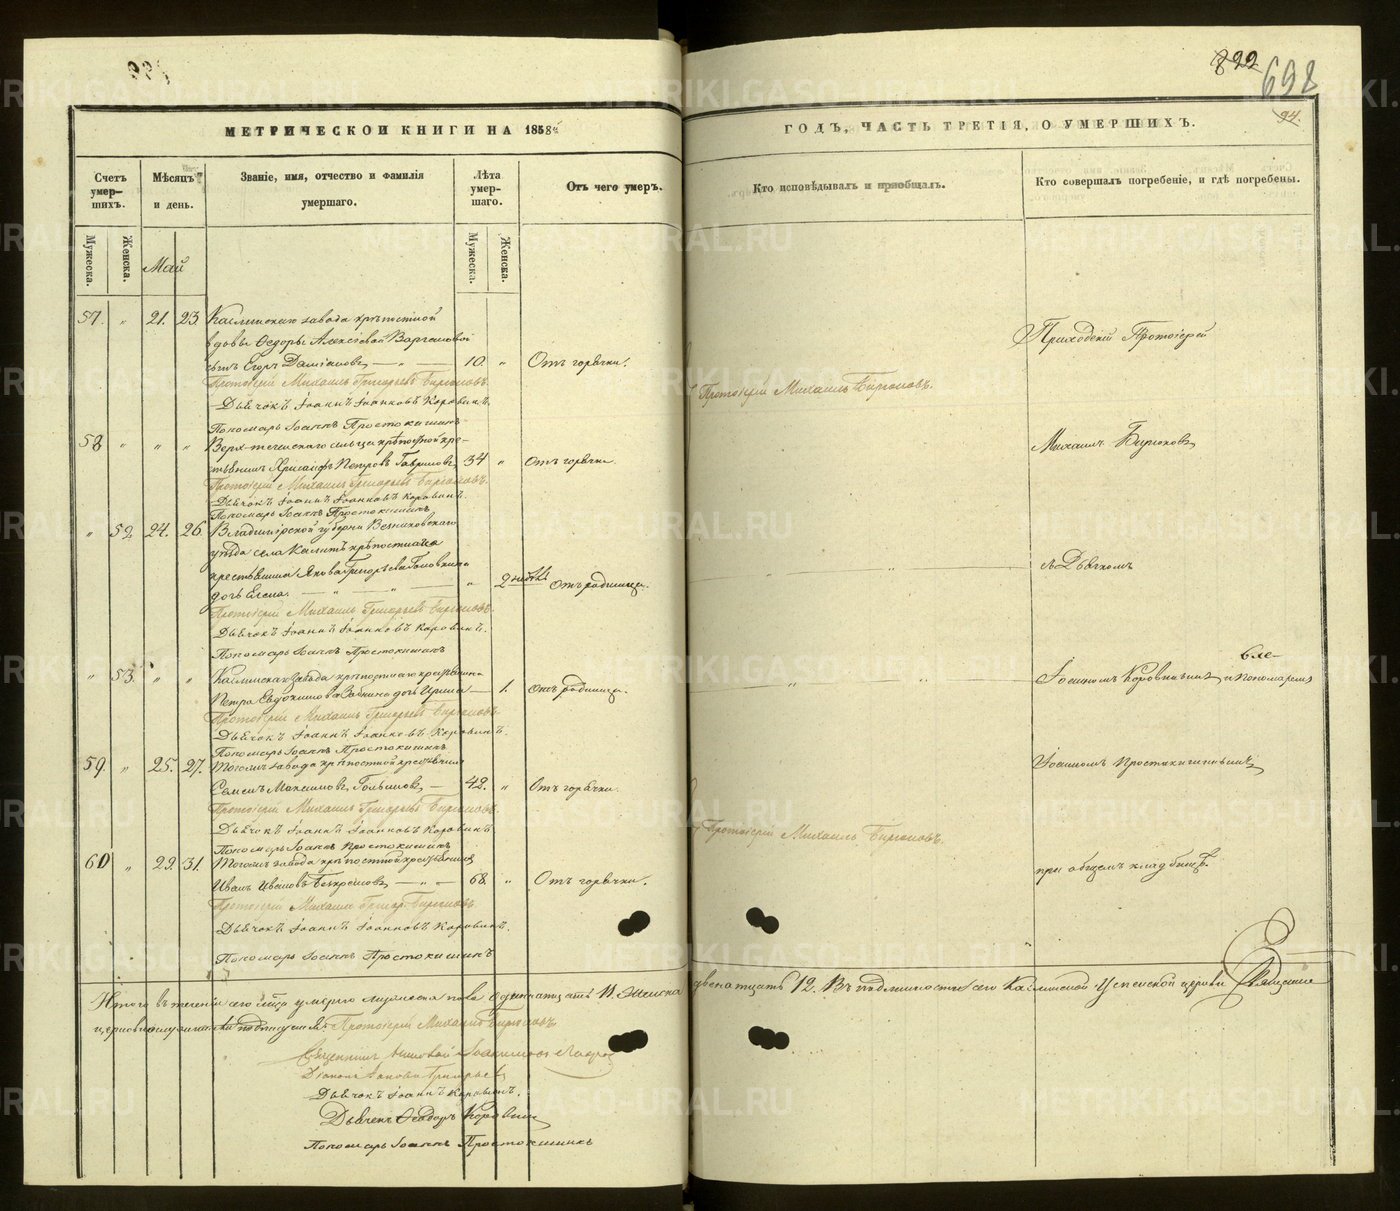 822
698
94.
МЕТРИЧЕСКОЙ КНИГИ НА 1858й
ГОДЪ, ЧАСТЬ ТРЕТІЯ, О УМЕРШИХЪ.
Счетъ умер-шихъ.
Мѣсяцъ и день.
Званіе, имя, отчество и фамилія умершаго.
Лѣта умер-шаго.
Отъ чего умеръ.
Кто исповѣдывалъ и пріобщалъ.
Кто совершалъ погребеніе, и гдѣ погребены.
Мужеска.
Женска.
Май
Мужеска.
Женска.
57. " 21. 23. Каслинскаго завода крѣпостной
вдовы Ѳедоры Алексѣевой
сынъ Егоръ Даміановъ 10. " Отъ горячки.
Протоіерей Михаилъ Григорьевъ Бирюковъ.
Дьячокъ Іоаннъ Іоанновъ Коровинъ.
Пономарь Іоаннъ Простокишинъ
Приходскій Протоіерей
Протоіерей Михаилъ Бирюковъ.
58 " " " Верх-теченскаго сельца крѣпостной кре-
стьянинъ Петровъ Гавриловъ 34 " Отъ горячки
Протоіерей Михаилъ Григорьевъ Бирюковъ.
Дьячокъ Іоаннъ Іоанновъ Коровинъ.
Пономарь Іоаннъ Простокишинъ
Михаилъ Бирюковъ
" 52 24. 26. Владимірской губерни Вязниковскаго
уѣзда села
крестьянина Якова Григорьева
дочь Елена. " 2 недѣль Отъ родимца.
Протоіерей Михаилъ Григорьевъ Бирюковъ
Дьячокъ Іоаннъ Іоанновъ Коровинъ.
Пономарь Іоаннъ Простокишинъ
съ Дьячкомъ
" 53. " " Каслинскаго завода крѣпостнаго крестьянина
Петра Евдокимова дочь Ирина 1. Отъ родимца.
Протоіерей Михаилъ Григорьевъ Бирюковъ
Дьячокъ Іоаннъ Іоанновъ Коровинъ.
Пономарь Іоаннъ Простокишинъ
Іоанномъ Коровинымъ и пономаремъ
59. " 25. 27. Тогожъ завода крѣпостной крестьянинъ
Семенъ Максимовъ 42. " Отъ горячки.
Протоіерей Михаилъ Григорьевъ Бирюковъ
Дьячокъ Іоаннъ Іоанновъ Коровинъ
Пономарь Іоаннъ Простокишинъ
Іоанномъ Простокишинымъ
Протоіерей Михаилъ Бирюковъ.
60 " 29. 31. Тогожъ завода крѣпостной крестьянинъ
Иванъ Ивановъ 68. " Отъ горячки.
Протоіерей Михаилъ Григор. Бирюковъ
Дьячокъ Іоаннъ Іоанновъ Коровинъ.
Пономарь Іоаннъ Простокишинъ
при общемъ кладбищѣ.
Итого въ теченіи сего мѣсяца умерло мужеска пола одиннатцать 11. женска двенатцать 12. Въ подлинности сего Каслинской Успенской церкви Священно
церковнослужители подписуемся: Протоіерей Михаилъ Бирюковъ
Священникъ
Діаконъ
Дьячокъ Іоаннъ Коровинъ.
Дьячекъ Ѳеодоръ Коровинъ
Пономарь Іоаннъ Простокишинъ
METRIKI.GASO-URAL.RU